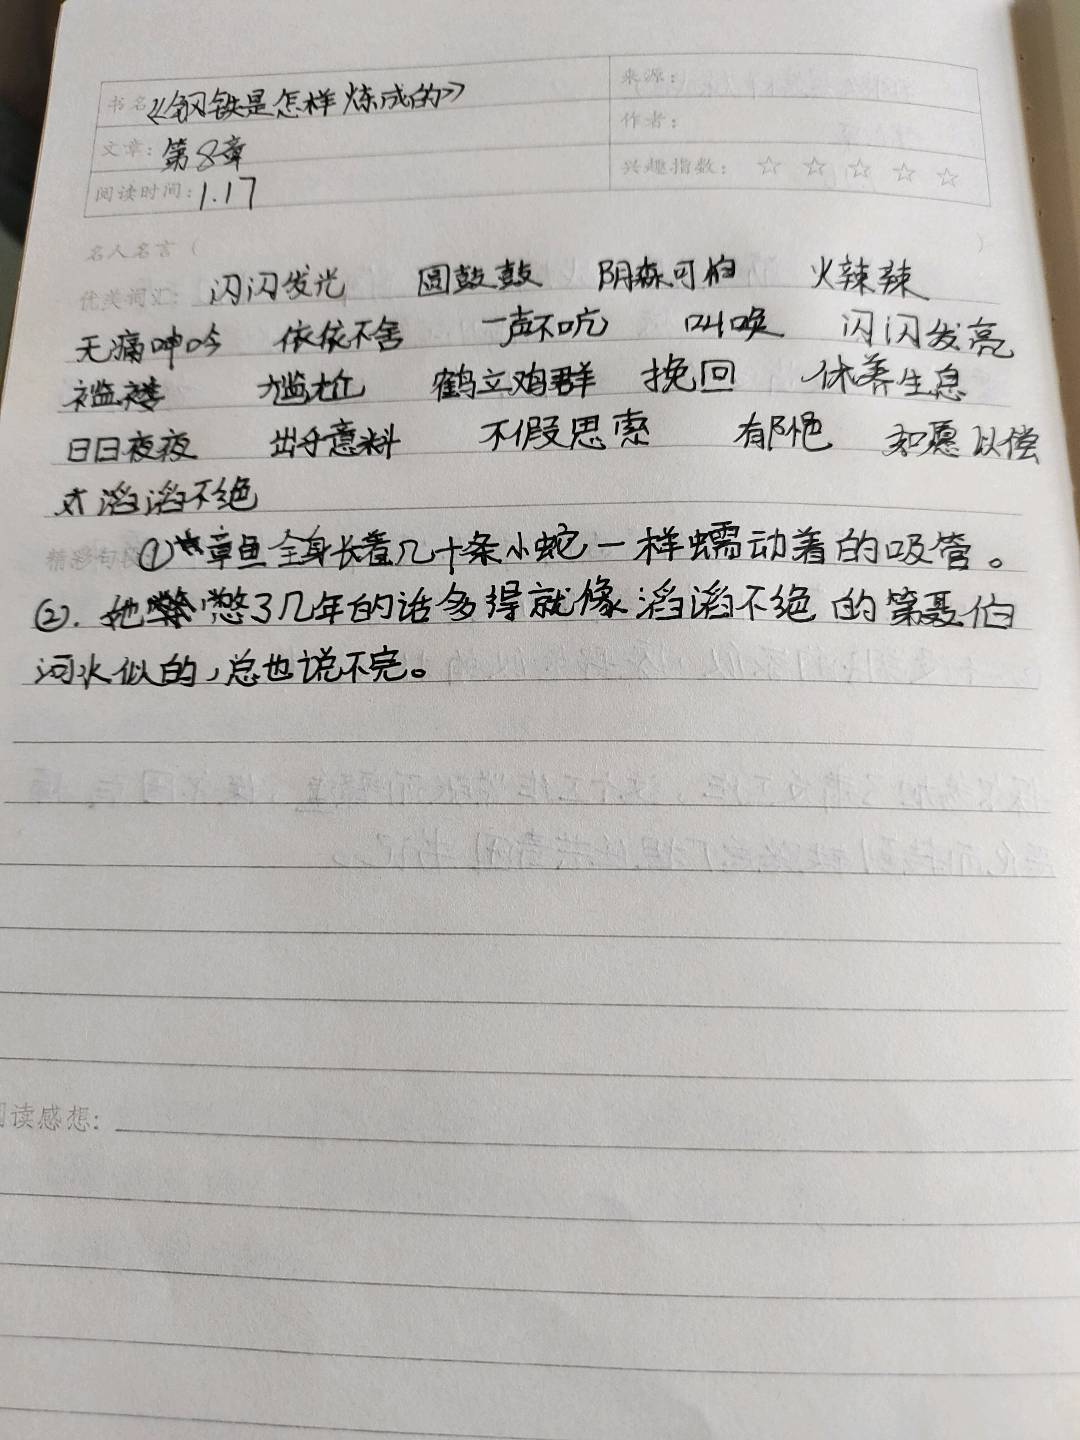 书名《钢铁是怎样炼成的》 来源：
文章：第8章 作者：
阅读时间：1.17 兴趣指数：☆ ☆ ☆ ☆ ☆
名人名言（ ）
优美词汇：闪闪发光 圆鼓鼓 阴森可怕 火辣辣
无痛呻吟 依依不舍 一声不吭 叫唤 闪闪发亮
褴褛 尴尬 鹤立鸡群 挽回 休养生息
日日夜夜 出乎意料 不假思索 如愿以偿
滔滔不绝
精彩句段 ①章鱼全身长着几十条小蛇一样蠕动着的吸管。
②.他憋了几年的话多得就像滔滔不绝的第聂伯
河水似的，总也说不完。
阅读感想：